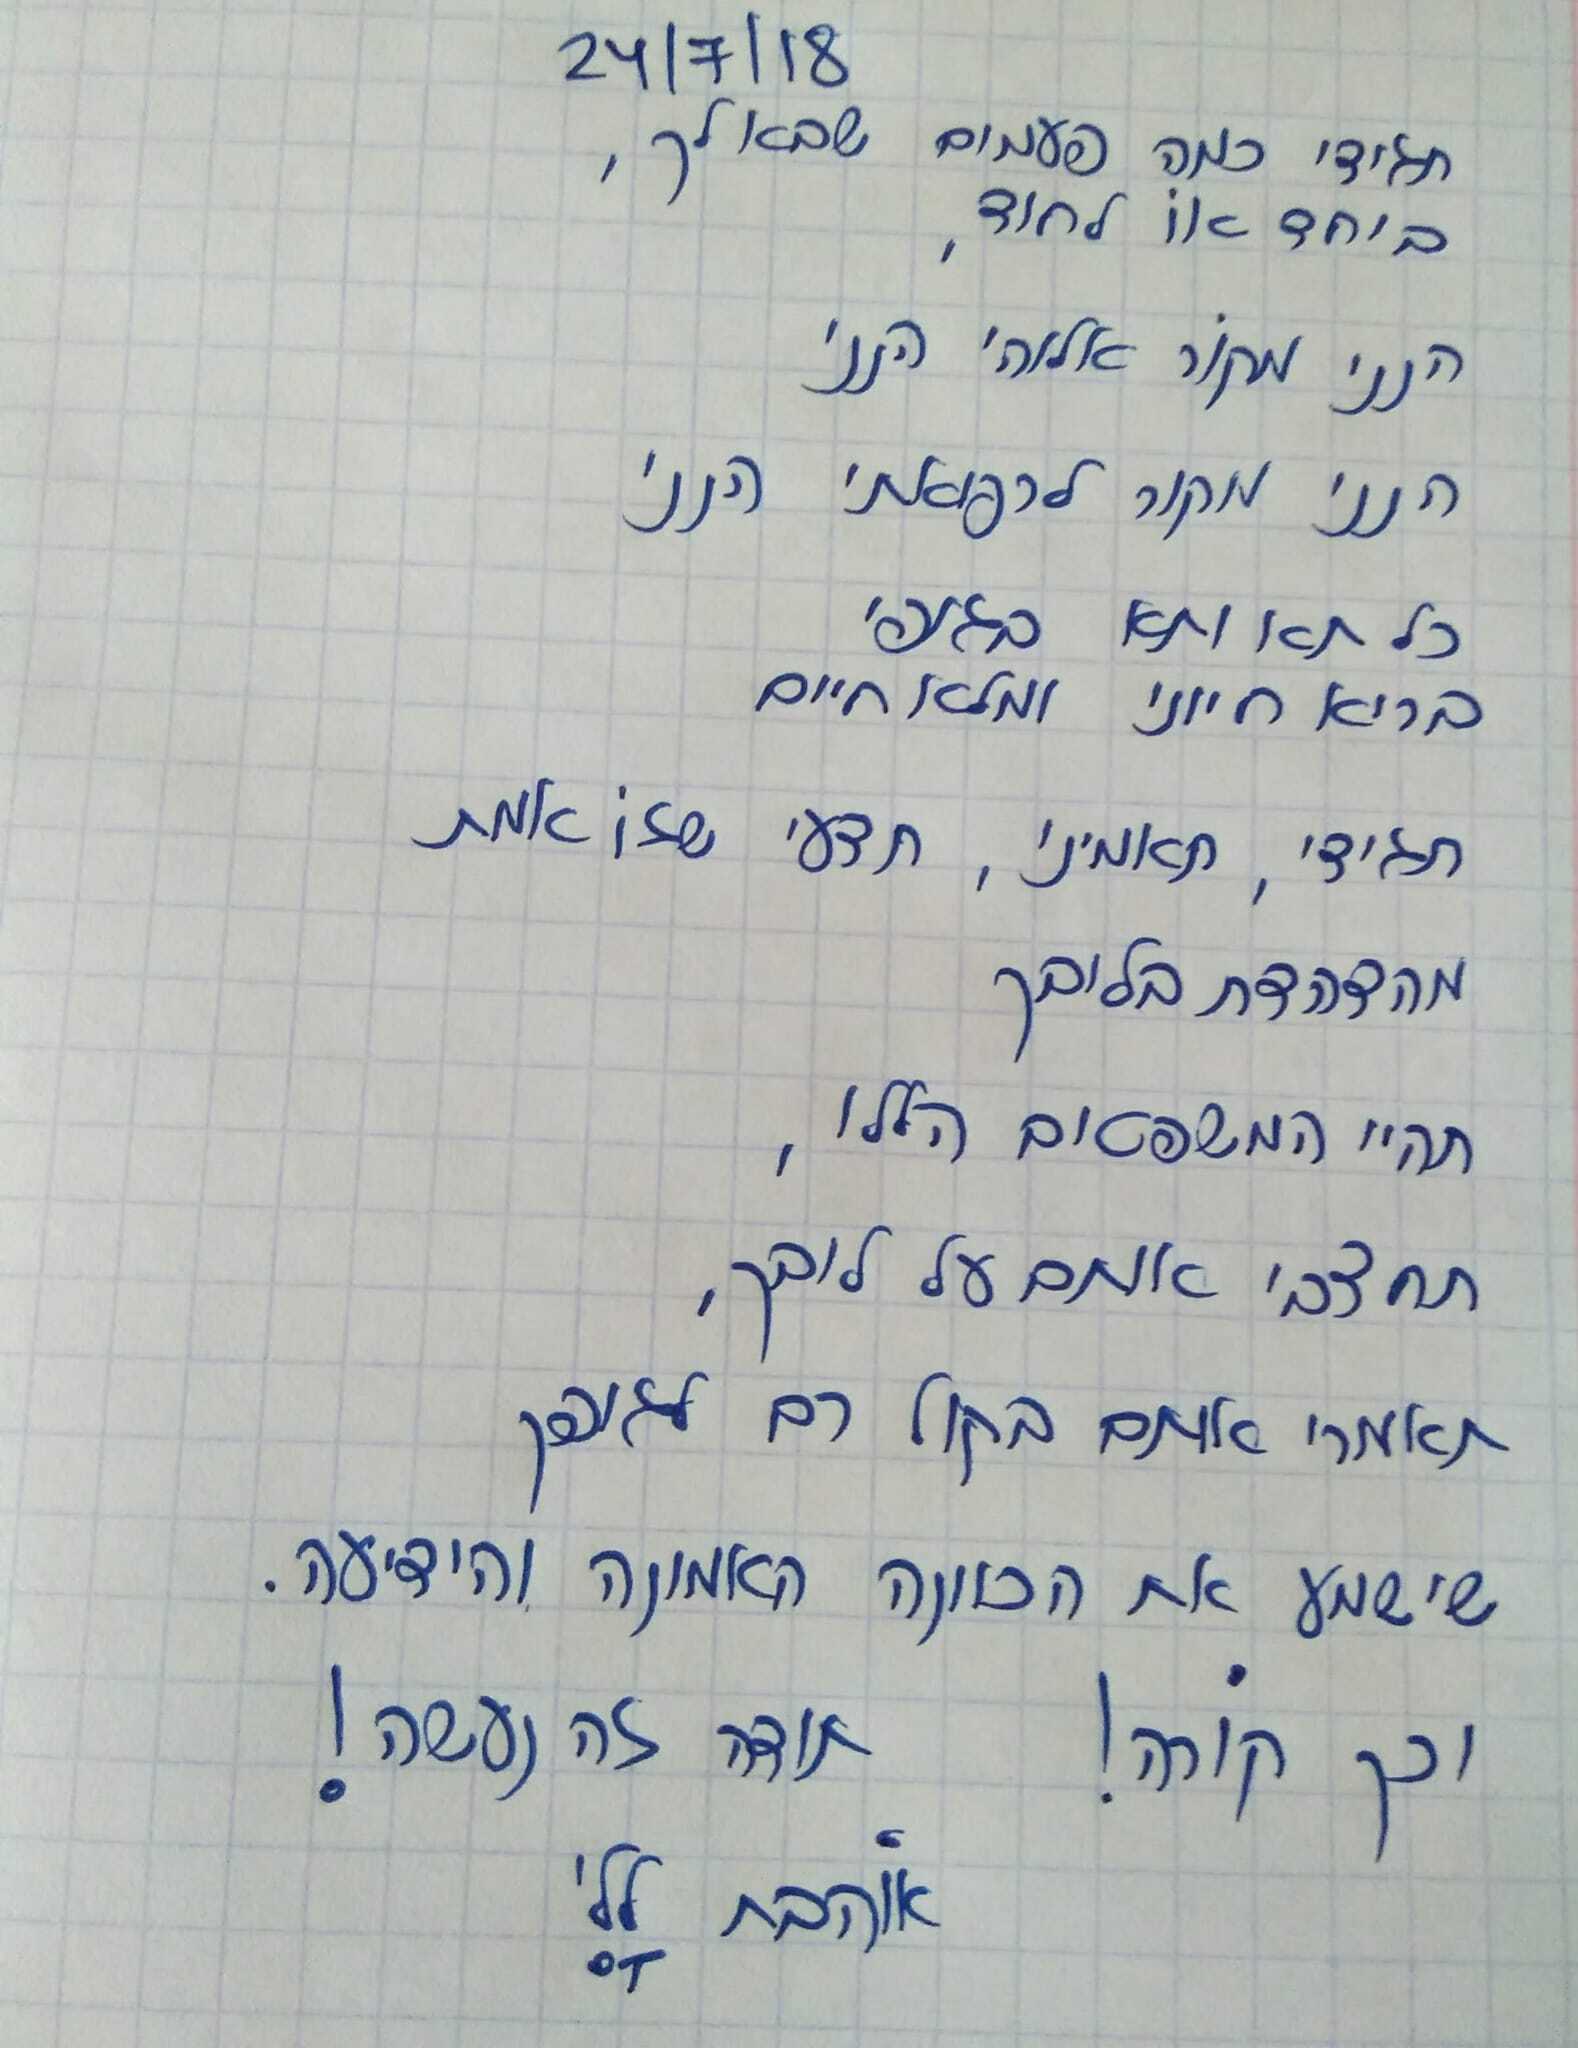 24/7/18
תגידי כמה פעמים שבא לך,
ביחד או לחוד,
הנני מקור אלוהי הנני
הנני מקור לרפואתי הנני
כל תא ותא בגופי
בריא חיוני ומלא חיים
תגידי, תאמיני, תדעי שזו אמת
מהדהדת בליבך
תהיי המשפטים הללו,
תחצבי אותם על ליבך,
תאמרי אותם בקול רם לגופך
שישמע את הכוונה האמונה והידיעה.
וכך קורה! תודה זה נעשה!
אוהבת לִלַי